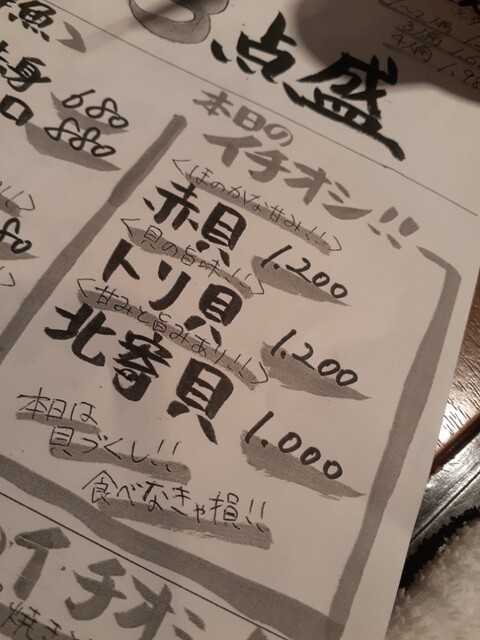 点盛
魚
680
880
本日の
イチオシ!!
<ほのかな甘み!!>
赤貝 1,200
<貝の旨味!!>
トリ貝 1,200
<甘みと旨みあり!!>
北寄貝 1,000
本日は
貝づくし!!
食べなきゃ損!!
のイチオシ